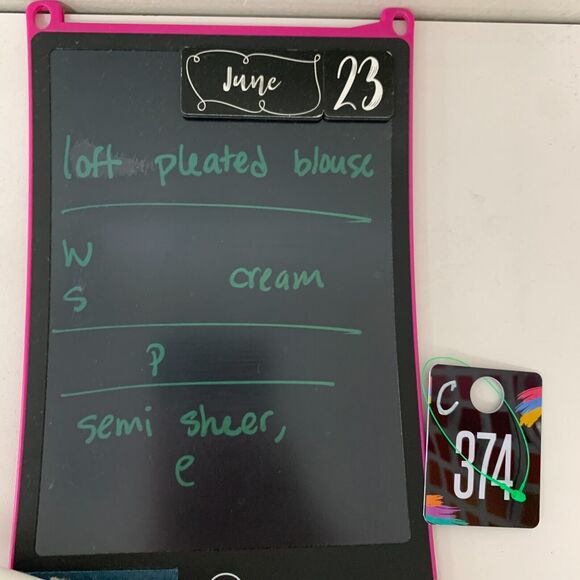 June 23
loft pleated blouse
W
cream
S
P
semi sheer,
e
C
374